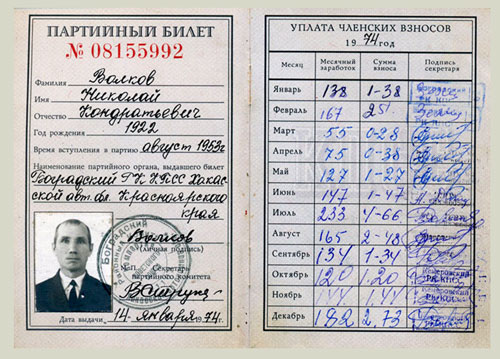 ПАРТИЙНЫЙ БИЛЕТ
№ 08155992
Фамилия Волков
Имя Николай
Отчество Кондратьевич
Год рождения 1922
Время вступления в партию август 1953г.
Наименование партийного органа, выдавшего билет
Боградский РК КПСС Хакас-
ской авт. обл. Красноярского
края
БОГРАДСКИЙ
Волков
(Личная подпись)
М.П. Секретарь
партийного комитета
Дата выдачи 14 января 1974г.
УПЛАТА ЧЛЕНСКИХ ВЗНОСОВ
1974 год
Месяц Месячный заработок Сумма взноса Подпись секретаря
Январь 138 1-38
Февраль 167 25
Март 55 0-28
Апрель 75 0-38
Май 127 1-27
Июнь 147 1-47
Июль 233 4-66
Август 165 2-48
Сентябрь 134 1-34
Октябрь 120 1.20
Ноябрь 144 1.44 РК КПСС
Декабрь 182 2.73